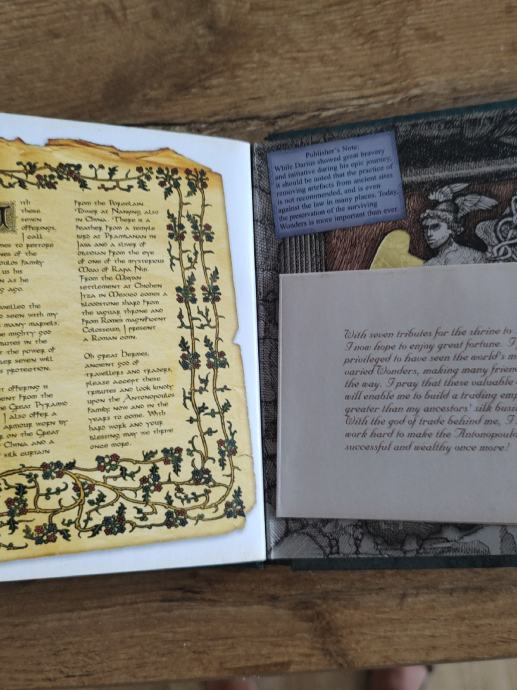 ith
these
seven
offerings,
I call
mes to restore
nes of the
oulos family
us his
en as he
g ago.
avelled the
o seen with my
many marvels.
the mighty god
butes in the
t the power of
ser seven will
s protection.
st offering is
ment from the
e Great Pyramid
I also offer a
armour worn by
r on the Great
China and a
silk curtain
from the Porcelain
Tower at Nanjing, also
in China. There is a
feather from a temple
bird at Prambanan in
Java and a sliver of
obsidian from the eye
of one of the mysterious
Moai of Rapa Nui.
From the Mayan
settlement at Chichen
Itza in Mexico comes a
bloodstone shard from
the jaguar throne and
from Rome's magnificent
Colosseum, I present
a Roman coin.
Oh great Hermes,
ancient god of
travellers and traders,
please accept these
tributes and look kindly
upon the Antonopoulos
family now and in the
years to come. With
hard work and your
blessing may we thrive
once more.
Publisher's Note:
While Darius showed great bravery
and initiative during his epic journey,
it should be noted that the practice of
removing artefacts from ancient sites
is not recommended, and is even
against the law in many places. Today,
the preservation of the surviving
Wonders is more important than ever
With seven tributes for the shrine to
I now hope to enjoy great fortune. I
privileged to have seen the world's m
varied Wonders, making many friend
the way. I pray that these valuable
will enable me to build a trading emp
greater than my ancestors' silk busi
With the god of trade behind me, I
work hard to make the Antonopoulo
successful and wealthy once more!